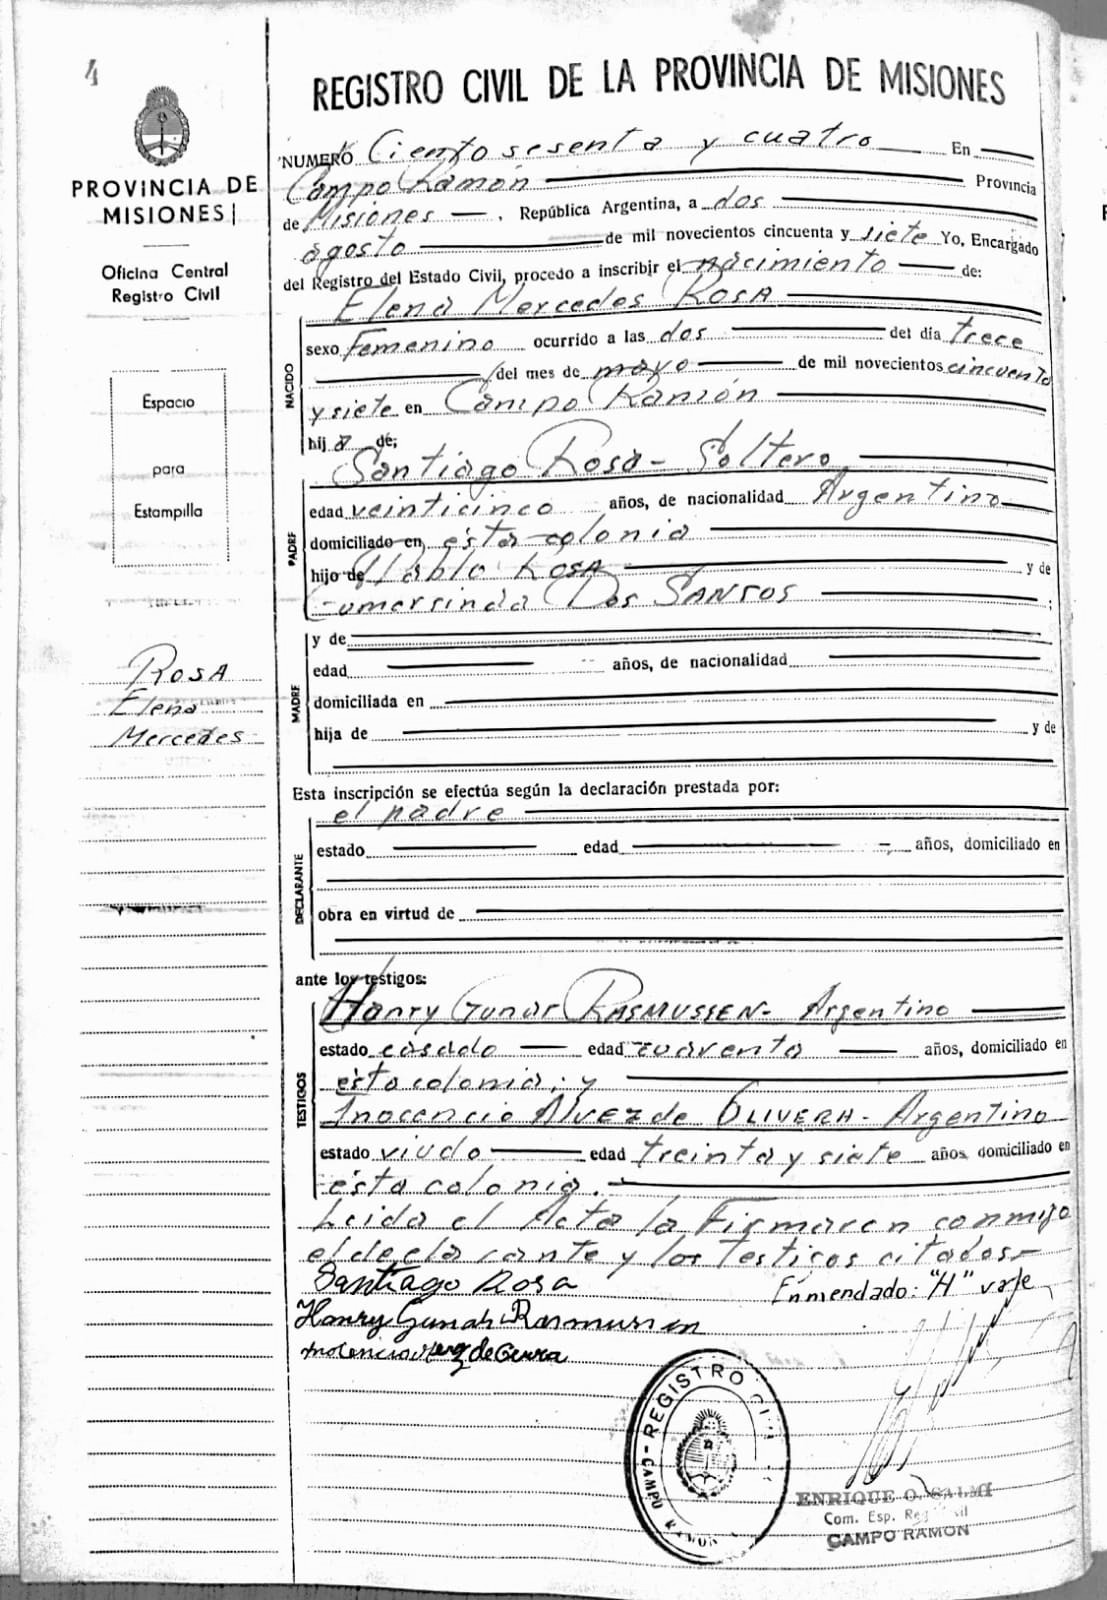 4
REGISTRO CIVIL DE LA PROVINCIA DE MISIONES
PROVINCIA DE
MISIONES
Oficina Central
Registro Civil
Espacio
para
Estampilla
ROSA
Elena
Mercedes
NUMERO Ciento sesenta y cuatro En
Campo Ramón Provincia
de Misiones, República Argentina, a dos
agosto de mil novecientos cincuenta y siete Yo, Encargado
del Registro del Estado Civil, procedo a inscribir el nacimiento de:
Elena Mercedes ROSA
NACIDO
sexo Femenino ocurrido a las dos del día trece
del mes de mayo de mil novecientos cincuenta
y siete en Campo Ramón
hija de;
Santiago Rosa - Soltero
PADRE
edad veinticinco años, de nacionalidad Argentino
domiciliado en, ésta colonia
hijo de Pablo ROSA y de
Gumersinda Dos SANTOS ;
MADRE
y de
edad años, de nacionalidad
domiciliada en
hija de y de
Esta inscripción se efectúa según la declaración prestada por:
el padre
DECLARANTE
estado edad años, domiciliado en
obra en virtud de
ante los testigos:
TESTIGOS
Hanry Gunar RASMUSSEN - Argentino
estado casado edad cuarenta años, domiciliado en
ésta colonia; y
Inocencio Alvez de OLIVERA - Argentino
estado viudo edad treinta y siete años, domiciliado en
ésta colonia.
Leida el Acta la Firmaren conmigo
el declarante y los testigos citados-
Santiago Rosa Enmendado: "H" vale
Hanry Gunar Rasmussen
REGISTRO CIVIL
CAMPO RAMON
ENRIQUE O. SALMI
Com. Esp. Reg. Civil
CAMPO RAMON